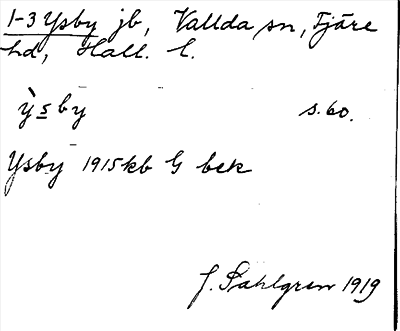 1-3 Ysby jb, Vallda sn, Fjäre
hd, Hall. l.
ỳsby s. 60.
Ysby 1915 kb G bek
J. Sahlgren 1919